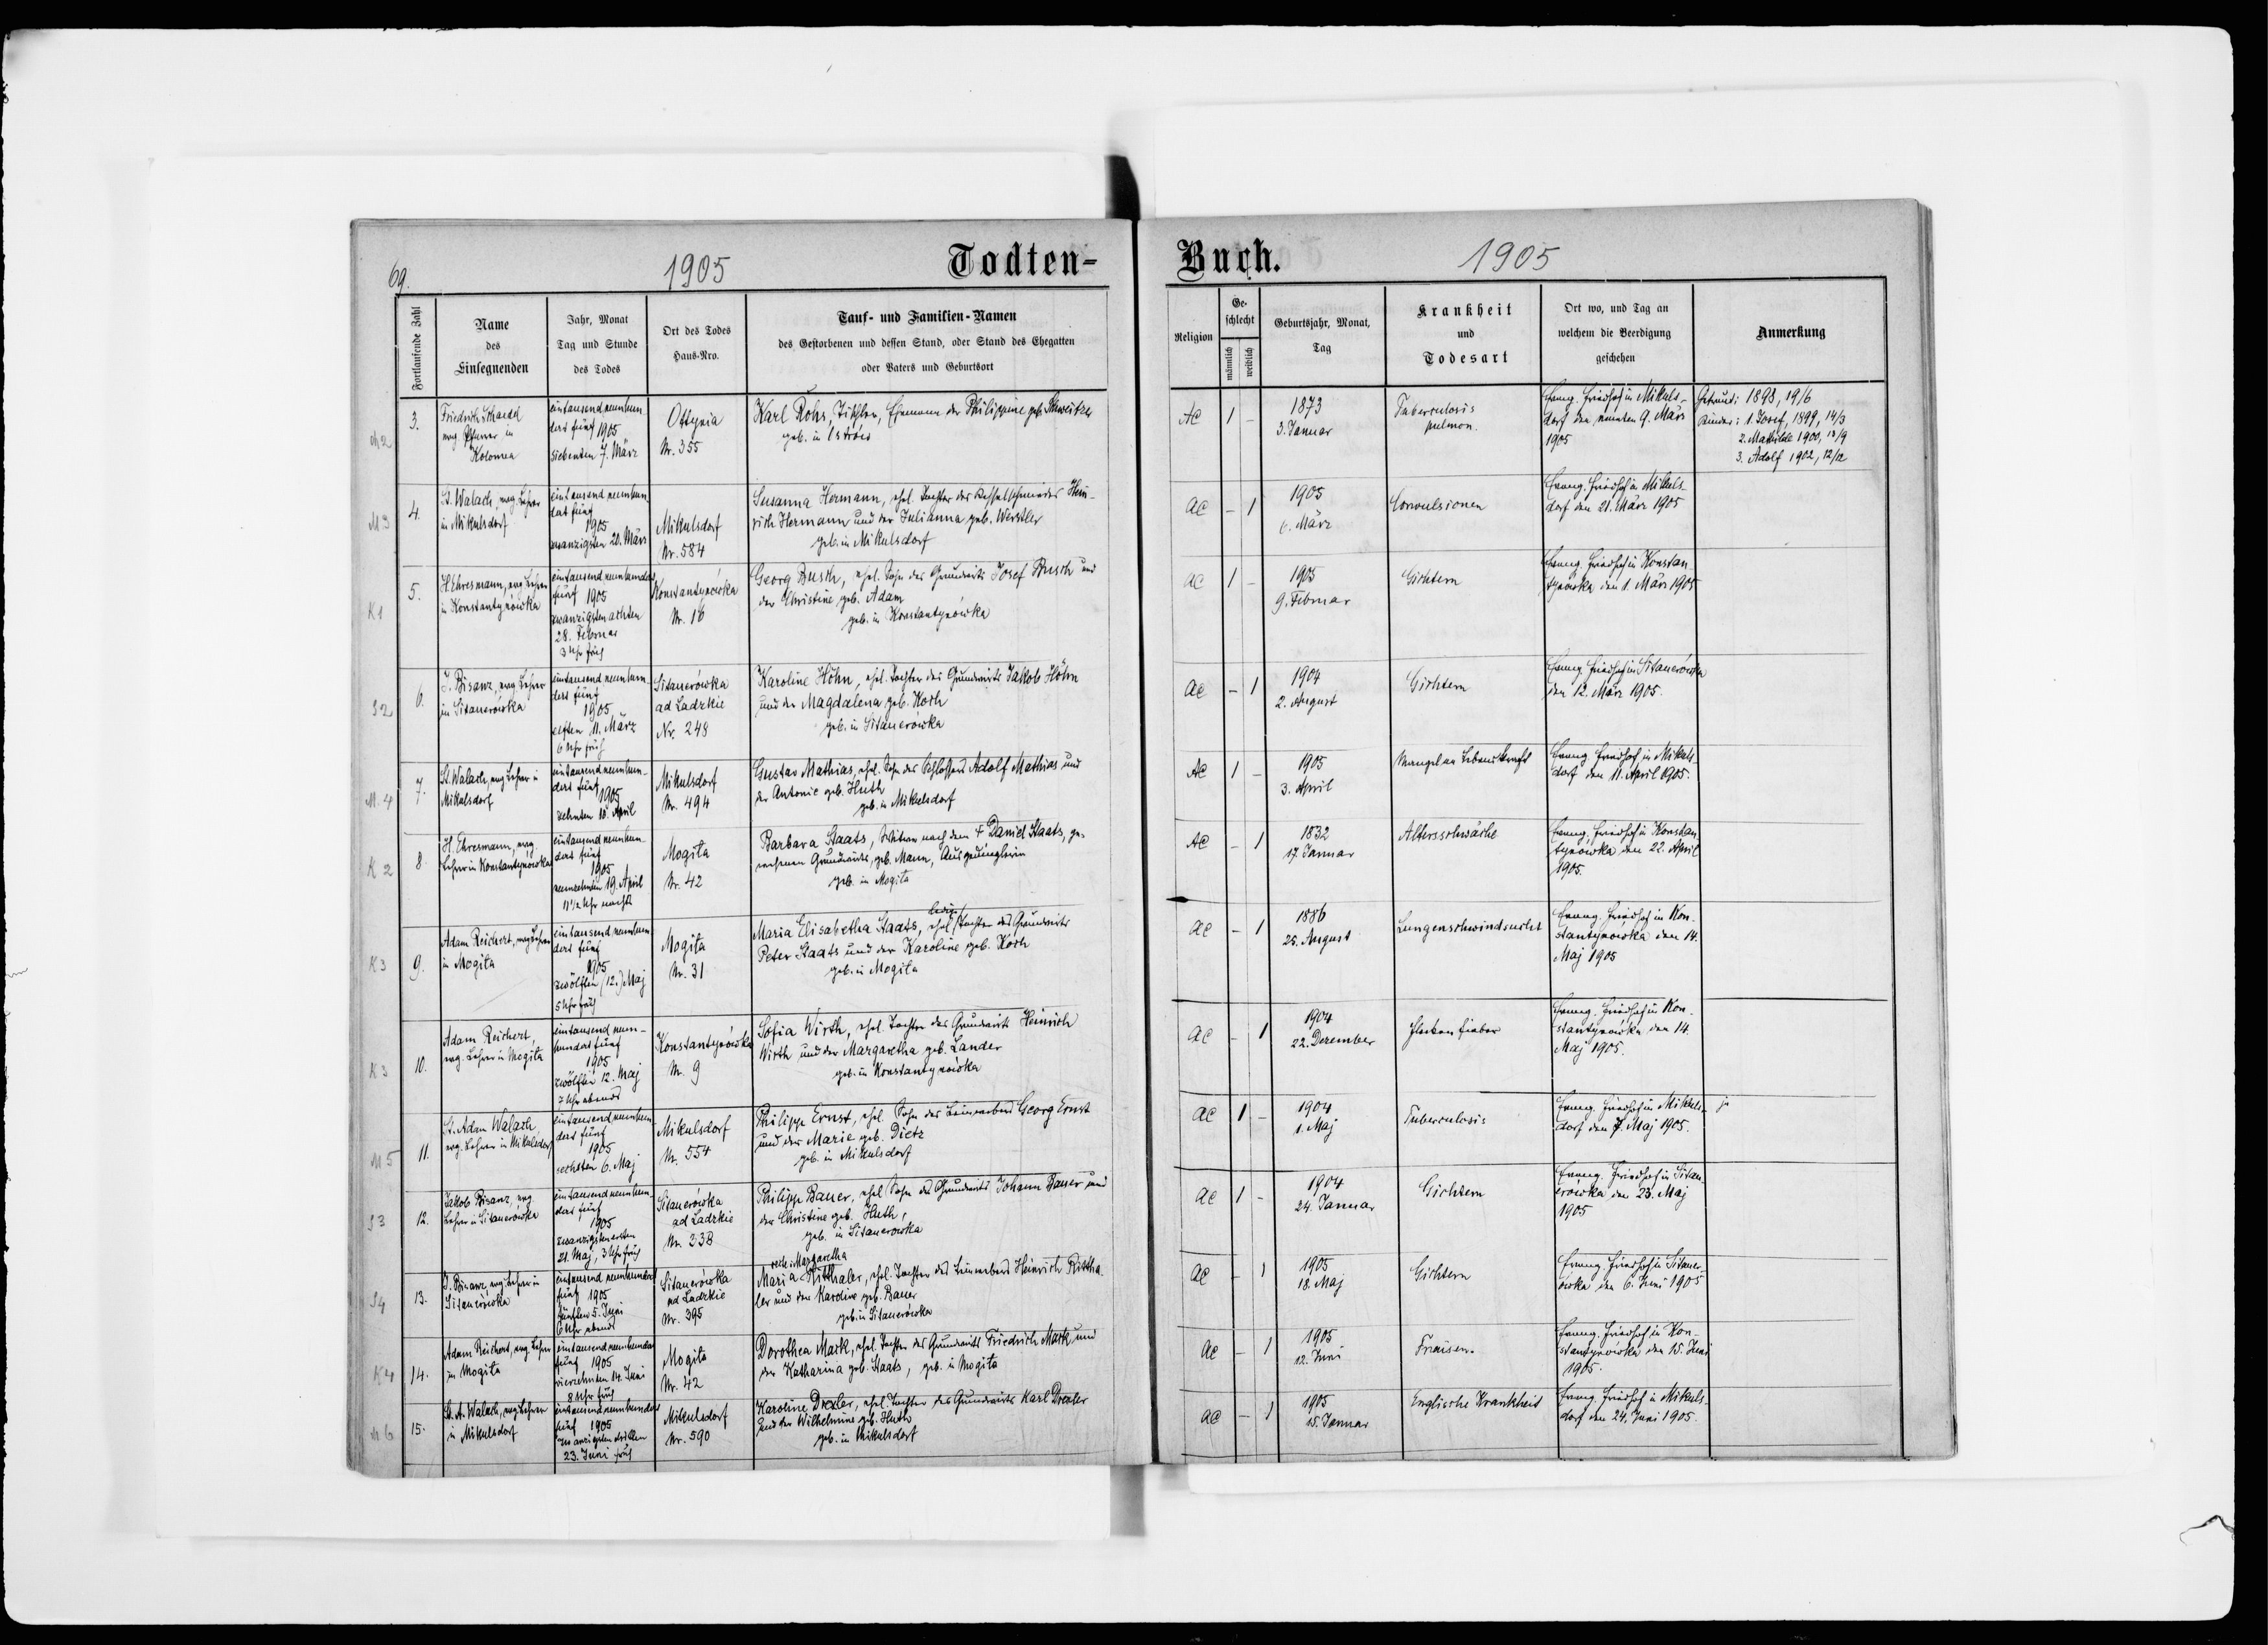 69.
1905
Todten-
Fortlaufende Zahl
Name
des
Einsegnenden
Jahr, Monat
Tag und Stunde
des Todes
Ort des Todes
Haus-Nro.
Tauf- und Familien-Namen
des Gestorbenen und dessen Stand, oder Stand des Ehegatten
oder Vaters und Geburtsort
3.
Friedrich
evg. Pfarrer in
Kolomea
eintausend neunhun-
dert fünf 1905
siebenten 7. März
Ottynia
Nr. 355
Karl Rohs, Tischler, Ehemann der Philippine geb. Schweitzer
geb. in
M 3
4.
St. Walach, evg. Lehrer
in Mikulsdorf
eintausend neunhun
dert fünf
1905
zwanzigsten 20. März
Mikulsdorf
Nr. 584
Susanna Hermann, ehel. Tochter des Kesselschmiedes Hein-
rich Hermann und der Julianna geb. Werstler
geb. in Mikulsdorf
K 1
5.
H. Ehresmann, evg. Lehrer
in Konstantynówka
eintausend neunhundert
fünf 1905
zwanzigsten achten
28. Februar
3 Uhr früh
Konstantynówka
Nr. 16
Georg Busch, ehel. Sohn des Grundwirts Josef Busch und
der Christine geb. Adam
geb. in Konstantynówka
S 2
6.
J. Bisanz, evg. Lehrer
in Sitauerówka
eintausend neunhun-
dert fünf
1905
elften 11. März
6 Uhr früh
Sitauerówka
ad Ladzkie
Nr. 248
Karoline Höhn, ehel. Tochter des Grundwirts Jakob Höhn
und der Magdalena geb. Koch
geb. in Sitauerówka
M. 4
7.
St. Walach, evg. Lehrer in
Mikulsdorf
eintausend neunhun-
dert fünf
1905
zehnten 10. April
Mikulsdorf
Nr. 494
Gustav Mathias, ehel. Sohn des Schlossers Adolf Mathias und
der Antonie geb. Huth
geb. in Mikulsdorf
K 2
8.
H. Ehresmann, evg.
Lehrer in Konstantynówka
eintausend neunhun-
dert fünf
1905
neunzehnten 19. April
11 1/2 Uhr nachts
Mogila
Nr. 42
Barbara Staats, Witwe nach dem † Daniel Staats, ge-
wesenen Grundwirts, geb. Mann, Ausgedinglerin
geb. in Mogila
K 3
9.
Adam Reichert, evg. Lehrer
in Mogila
eintausend neunhun
dert fünf
1905
zwölften (12.) Maj
5 Uhr früh
Mogila
Nr. 31
ledig
Maria Elisabetha Staats, ehel. Tochter des Grundwirts
Peter Staats und der Karoline geb. Koch
geb. in Mogila
K 3
10.
Adam Reichert,
evg. Lehrer in Mogila
eintausend neun-
hundert fünf
1905
zwölften 12. Maj
7 Uhr abends
Konstantynówka
Nr. 9
Sofia Wirth, ehel. Tochter des Grundwirts Heinrich
Wirth und der Margaretha geb. Lander
geb. in Konstantynówka
M 5
11.
St. Adam Walach,
evg. Lehrer in Mikulsdorf
eintausend neunhun
dert fünf
1905
sechsten 6. Maj
Mikulsdorf
Nr. 554
Philipp Ernst, ehel. Sohn des Leinwebers Georg Ernst
und der Marie geb. Dietz
geb. in Mikulsdorf
S 3
12.
Jakob Bisanz, evg.
Lehrer in Sitauerówka
eintausend neunhun
dert fünf
1905
zwanzigsten ersten
21. Maj, 3 Uhr früh
Sitauerówka
ad Ladzkie
Nr. 238
Philipp Bauer, ehel. Sohn des Grundwirts Johann Bauer und
der Christine geb. Huth,
geb. in Sitauerowka
S 4
13.
J. Bisanz, evg. Lehrer in
Sitauerówka
eintausend neunhundert
fünf 1905
fünften 5. Juni
6 Uhr abends
Sitauerówka
ad Ladzkie
Nr. 395
recte: Margaretha
Maria Ritthaler, ehel. Tochter des Leinwebers Heinrich Rittha-
ler und der Karoline geb. Bauer
geb. in Sitauerówka
K 4
14.
Adam Reichert, evg. Lehrer
in Mogila
eintausend neunhundert
fünf 1905
vierzehnten 14. Juni
8 Uhr früh
Mogila
Nr. 42
Dorothea Mark, ehel. Tochter des Grundwirts Friedrich Mark und
der Katharina geb. Staats, geb. in Mogila
M 6
15.
St. A. Walach, evg. Lehrer
in Mikulsdorf
eintausend neunhundert
fünf 1905
zwanzigsten dritten
23. Juni früh
Mikulsdorf
Nr. 590
Karoline Drexler, ehel. Tochter des Grundwirts Karl Drexler
und der Wilhelmine geb. Huth
geb. in Mikulsdorf
Buch.
1905
Religion
Ge-
schlecht
männlich
weiblich
Geburtsjahr, Monat,
Tag
Krankheit
und
Todesart
Ort wo, und Tag an
welchem die Beerdigung
geschehen
Anmerkung
AC
1
-
1873
3. Januar
Tuberculosis
pulmon.
Evang. Friedhof in Mikuls-
dorf den neunten 9. März
1905
Getraut: 1898, 19/6
Kinder: 1. Josef, 1899, 14/3
2. Mathilde 1900, 18/9
3. Adolf 1902, 12/12
AC
-
1
1905
6. März
Convulsionen
Evang. Friedhof in Mikuls-
dorf den 21. März 1905
AC
1
-
1905
9. Februar
Gichtern
Evang. Friedhof in Konstan
tynówka den 1. März 1905
AC
-
1
1904
2. August
Gichtern
Evang. Friedhof in Sitauerówka
den 12. März 1905.
AC
1
-
1905
3. April
Mangel an Lebenskraft
Evang. Friedhof in Mikuls-
dorf den 11. April 1905.
AC
-
1
1832
17. Januar
Altersschwäche
Evang. Friedhof in Konstan
tynówka den 22. April
1905.
AC
-
1
1886
25. August
Lungenschwindsucht
Evang. Friedhof in Kon-
stantynowka den 14.
Maj 1905
AC
-
1
1904
22. Dezember
Fleckenfieber
Evang. Friedhof in Kon-
stantynówka den 14.
Maj 1905.
AC
1
-
1904
1. Maj
Tuberculosis
Evang. Friedhof in Mikuls-
dorf den 7. Maj 1905.
AC
1
-
1904
24. Januar
Gichtern
Evang. Friedhof in Sitau-
erówka den 23. Maj
1905
AC
-
1
1905
18. Maj
Gichtern
Evang. Friedhof in Sitauer-
ówka den 6. Juni 1905
AC
-
1
1905
12. Juni
Fraisen.
Evang. Friedhof in Kon-
stantynówka den 15. Juni
1905.
AC
-
1
1905
15. Januar
Englische Krankheit
Evang. Friedhof in Mikuls-
dorf den 24. Juni 1905.